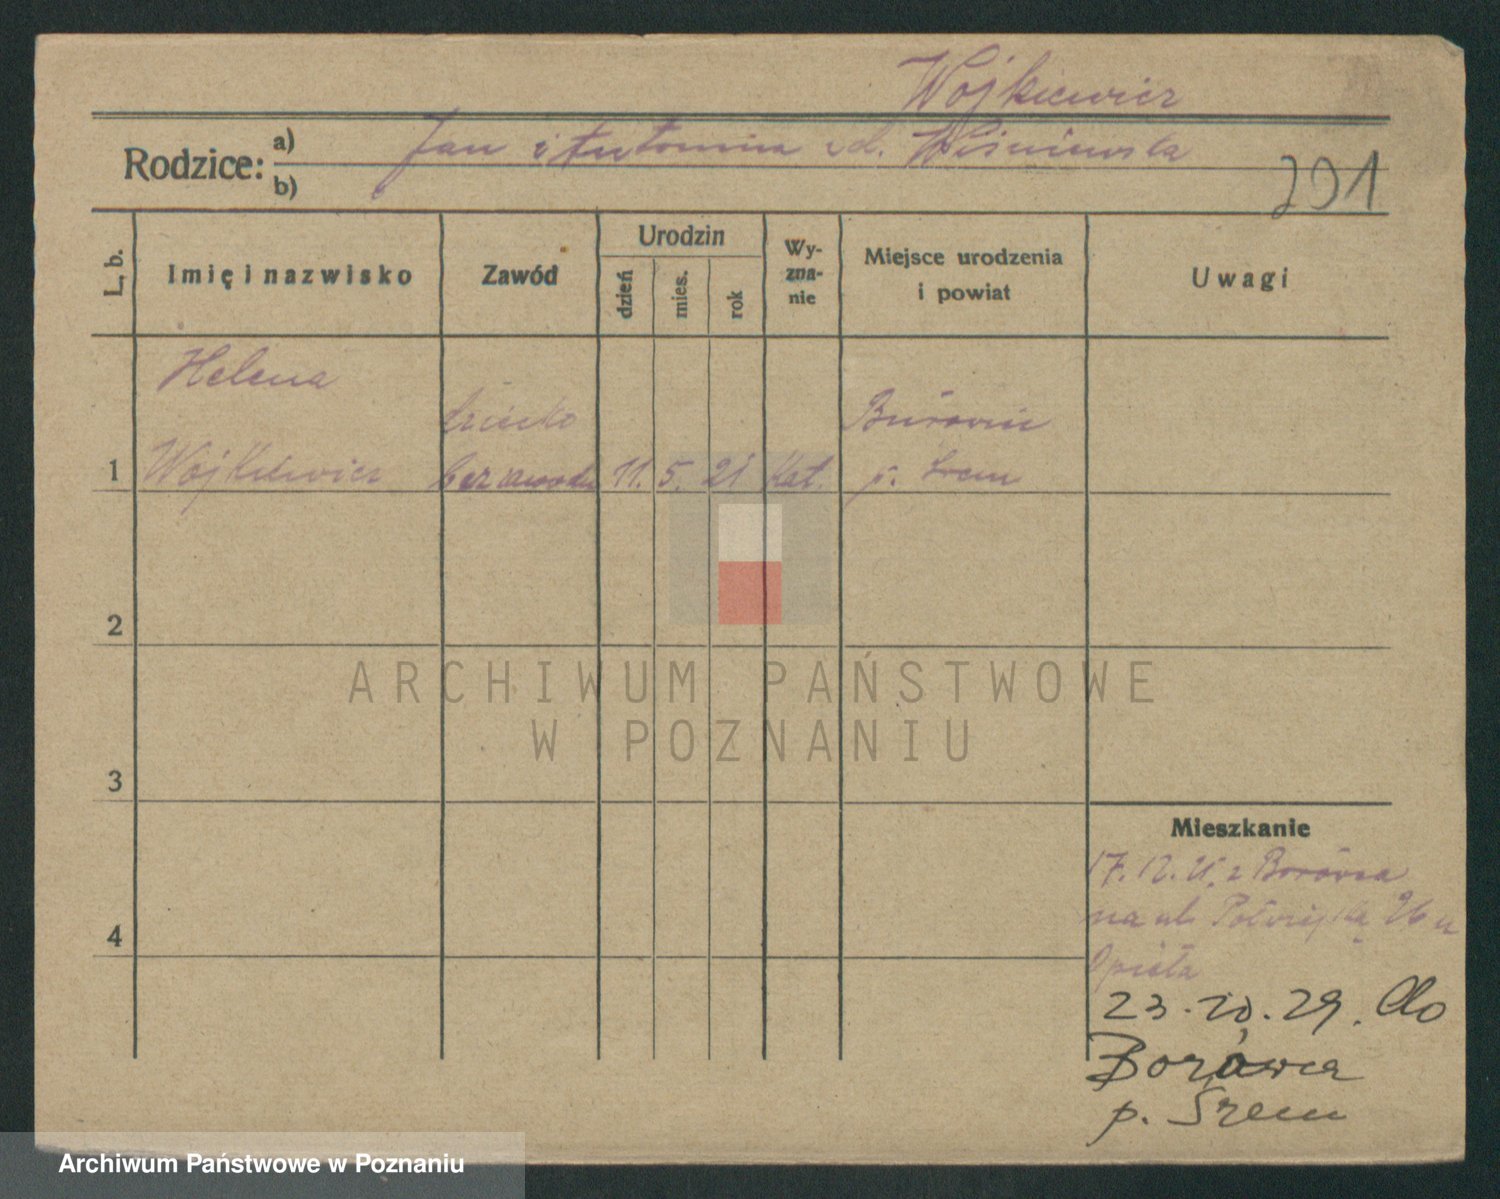 Wojkiewicz
Rodzice: a) Jan i Antonina z d. Wiśniewska
b)
291
L. b.
Imię i nazwisko
Zawód
Urodzin
dzień
mies.
rok
Wy-
zna-
nie
Miejsce urodzenia
i powiat
Uwagi
Helena
dziecko
1 Wojkiewicz bez zawodu 11. 5. 21 Kat. p. Śrem
2
3
4
ARCHIWUM PAŃSTWOWE
W POZNANIU
Mieszkanie
17. 12. z Borówca
na ul. 26 u
Opieła
23. 10. 29. do
Borówca
p. Śrem
Archiwum Państwowe w Poznaniu